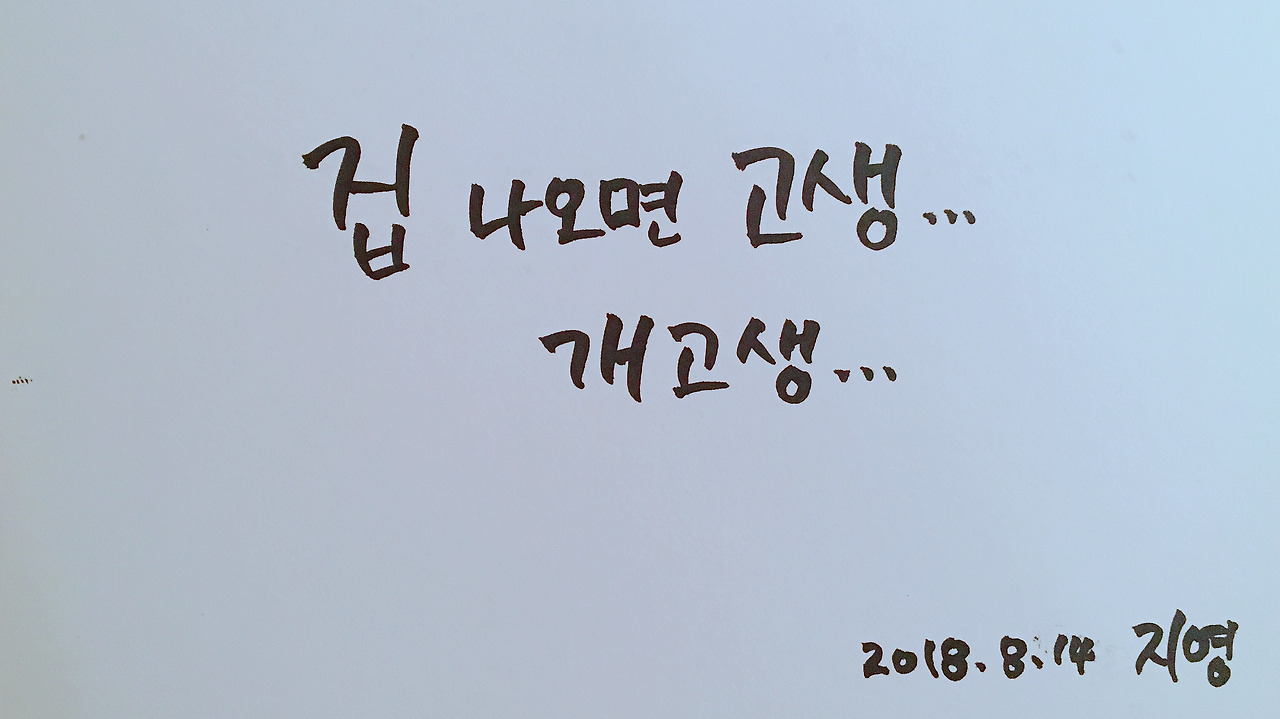 집 나오면 고생...
개고생...
2018. 8. 14 지영